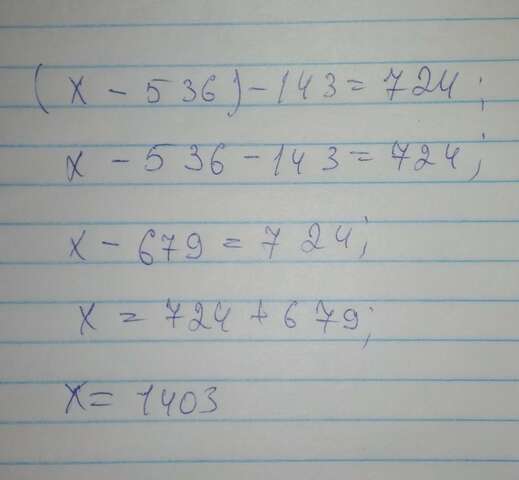 (x - 536) - 143 = 724;
x - 536 - 143 = 724;
x - 679 = 724;
x = 724 + 679;
x = 1403